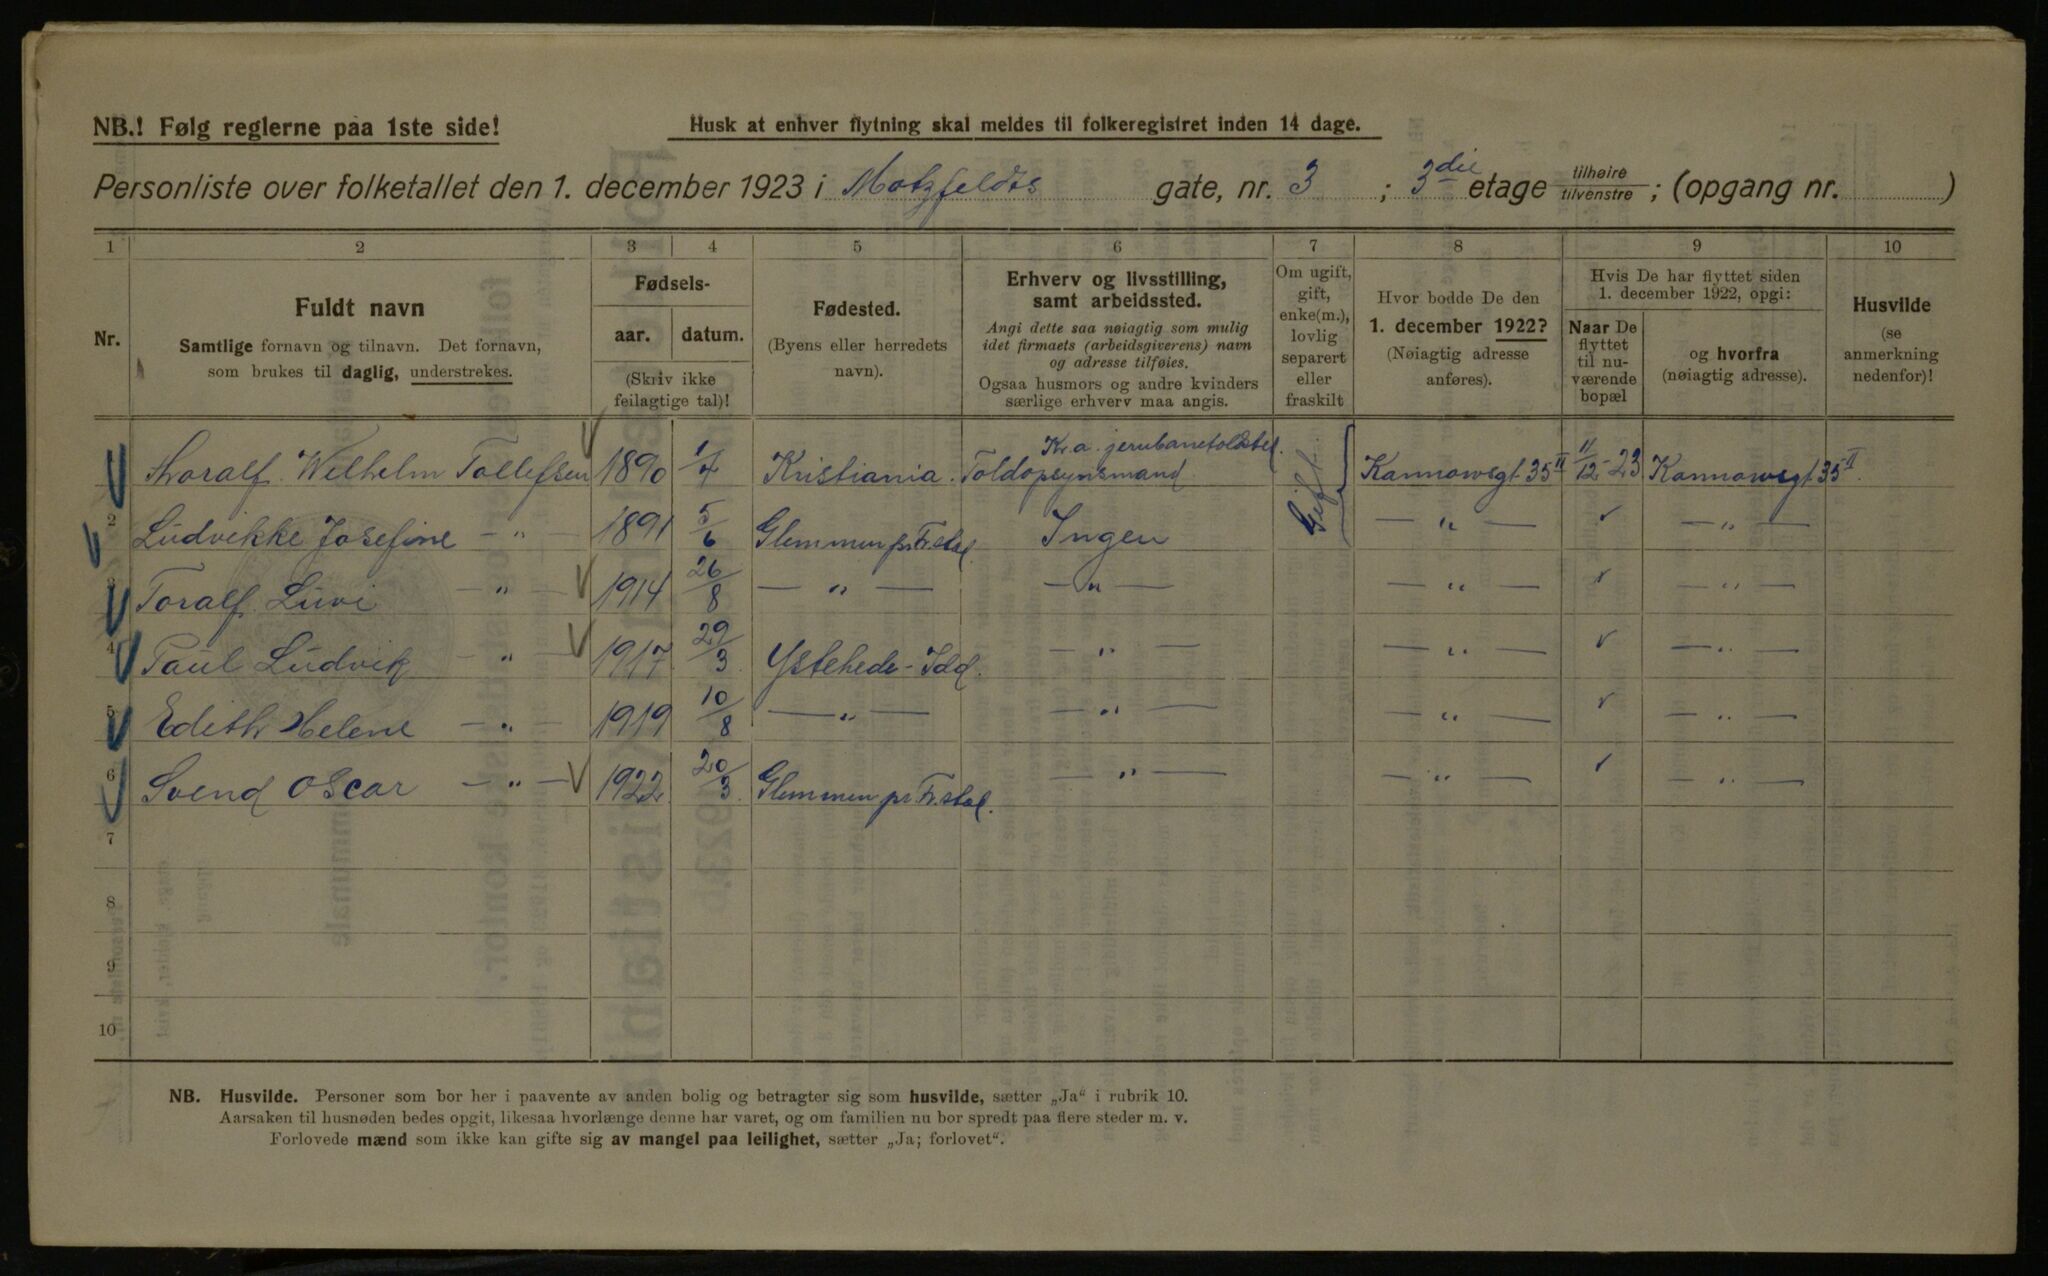 NB.! Følg reglerne paa 1ste side!
Husk at enhver flytning skal meldes til folkeregistret inden 14 dage.
Personliste over folketallet den 1. december 1923 i Motzfeldts gate, nr. 3 ; 3die etage tilhøire/tilvenstre ; (opgang nr. )
1 2 3 4 5 6 7 8 9 10
Nr.
Fuldt navn
Samtlige fornavn og tilnavn. Det fornavn,
som brukes til daglig, understrekes.
Fødsels-
aar. datum.
(Skriv ikke
feilagtige tal)!
Fødested.
(Byens eller herredets
navn).
Erhverv og livsstilling,
samt arbeidssted.
Angi dette saa nøiagtig som mulig
idet firmaets (arbeidsgiverens) navn
og adresse tilføies.
Ogsaa husmors og andre kvinders
særlige erhverv maa angis.
Om ugift,
gift,
enke(m.),
lovlig
separert
eller
fraskilt
Hvor bodde De den
1. december 1922?
(Nøiagtig adresse
anføres).
Hvis De har flyttet siden
1. december 1922, opgi:
Naar De
flyttet
til nu-
værende
bopæl
og hvorfra
(nøiagtig adresse).
Husvilde
(se
anmerkning
nedenfor)!
Kr.a. jernbanetoldsted.
Thoralf Wilhelm Tollefsen 1890 1/4 Kristiania. Toldopsynsmand Gift Kannowsgt 35 II 11/12-23 Kannowsgt 35 II
2 Ludvikke Josefine — " — 1891 5/6 Glemmen pr. Fr.stad Ingen — " — — " —
3 Toralf Luvi — " — 1914 26/8 — " — — " — — " — — " —
4 Paul Ludvik — " — 1917 29/3 Ystehede - Idd. — " — — " — — " —
5 Edith Helene — " — 1919 10/8 — " — — " — — " — — " —
6 Svend Oscar — " — 1922 20/3 Glemmen pr. Fr.stad. — " — — " — — " —
7
8
9
10
NB. Husvilde. Personer som bor her i paavente av anden bolig og betragter sig som husvilde, sætter „Ja“ i rubrik 10.
Aarsaken til husnøden bedes opgit, likesaa hvorlænge denne har varet, og om familien nu bor spredt paa flere steder m. v.
Forlovede mænd som ikke kan gifte sig av mangel paa leilighet, sætter „Ja; forlovet“.